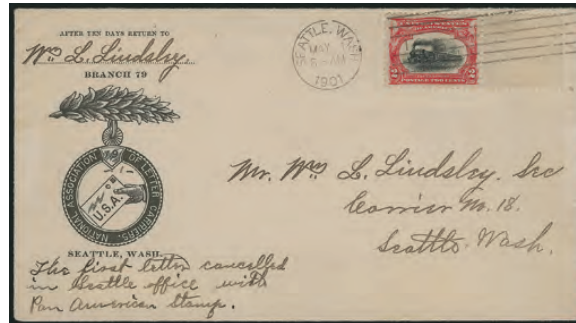 AFTER TEN DAYS RETURN TO
Wm L. Lindsley.
BRANCH 79
79
NATIONAL ASSOCIATION OF LETTER CARRIERS
U.S.A.
SEATTLE, WASH.
The first letter cancelled
in Seattle office with
Pan American Stamp.
SEATTLE, WASH.
MAY
AM
1901
2 2
Mr. Wm L. Lindsley. Sec
Carrier No. 18.
Seattle Wash.